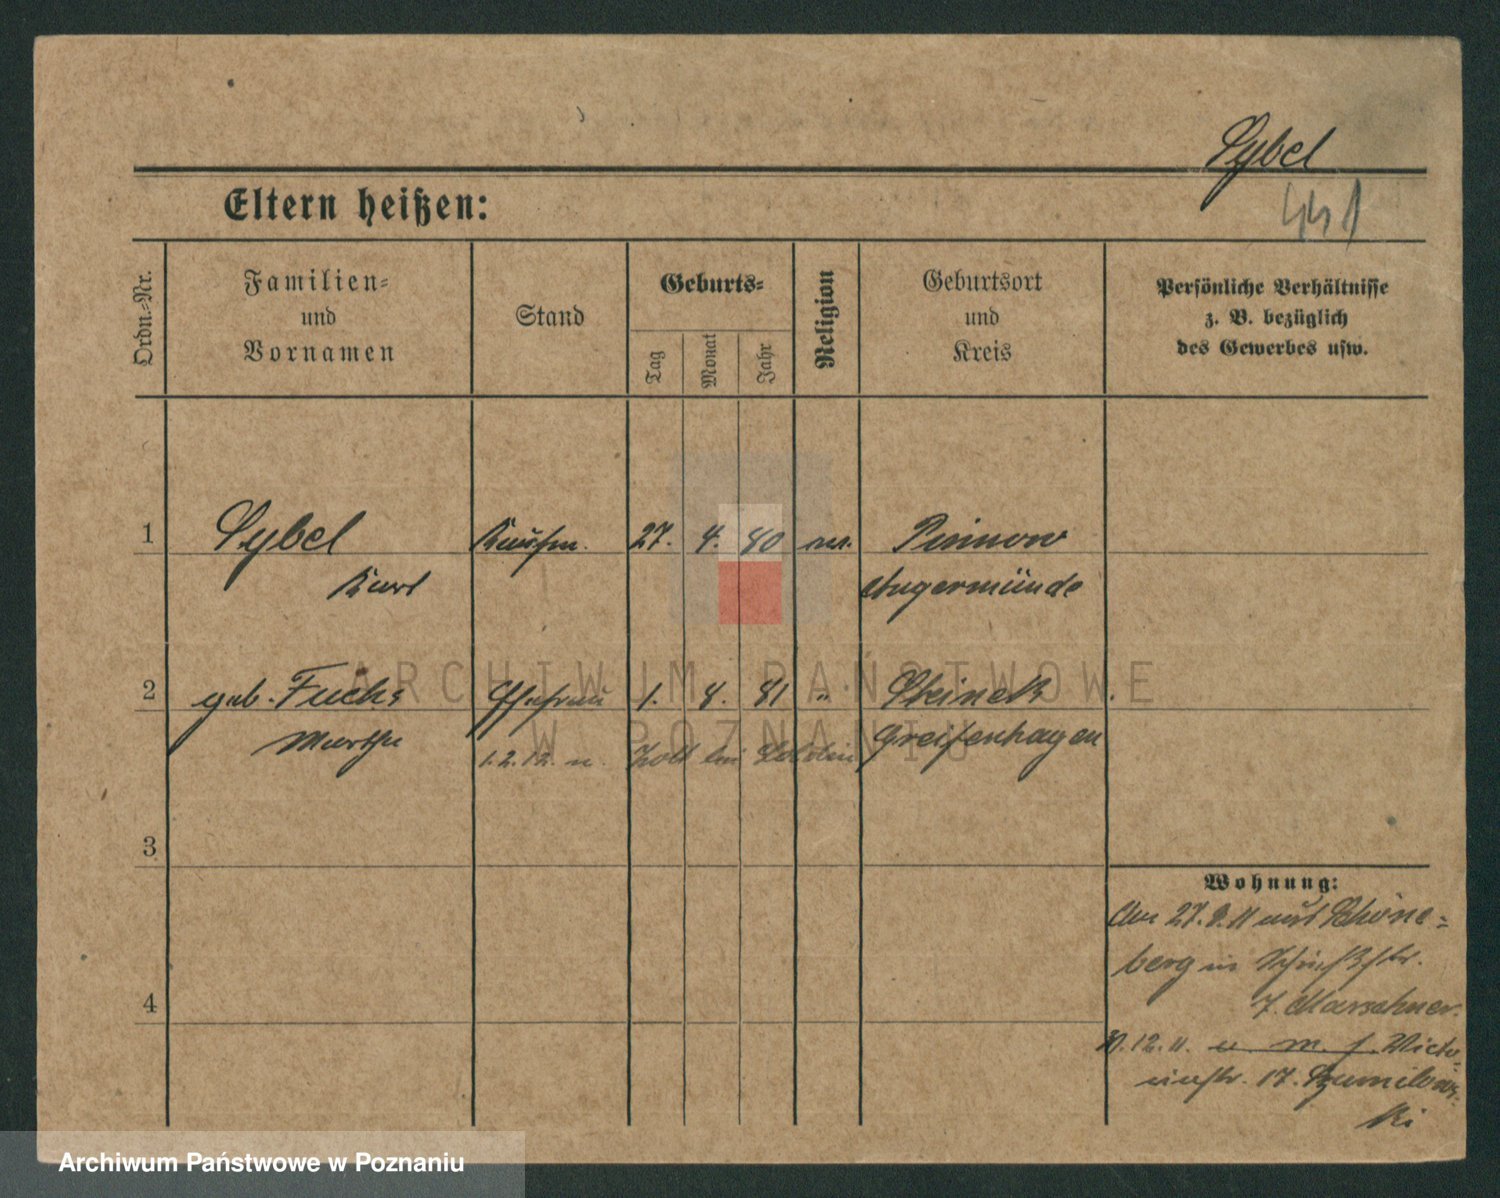 Sybel
441
Eltern heißen:
Ordn.-Nr.
Familien-
und
Vornamen
Stand
Geburts-
Tag
Monat
Jahr
Religion
Geburtsort
und
Kreis
Persönliche Verhältnisse
z. B. bezüglich
des Gewerbes usw.
1 Sybel Kaufm. 27. 4. 80 ev. Pinnow
Kurt Angermünde
2 geb. Fuchs Ehefrau 1. 8. 81 " Steineck
Martha Greifenhagen
1.2.12. n. bei Soldin
3
4
Wohnung:
Am 27.9.11 aus Schöne-
berg in
7. Marschner.
30.12.11. u. m. f. Victo-
riastr. 17. Szumilows-
ki
ARCHIWUM PAŃSTWOWE
W POZNANIU
Archiwum Państwowe w Poznaniu